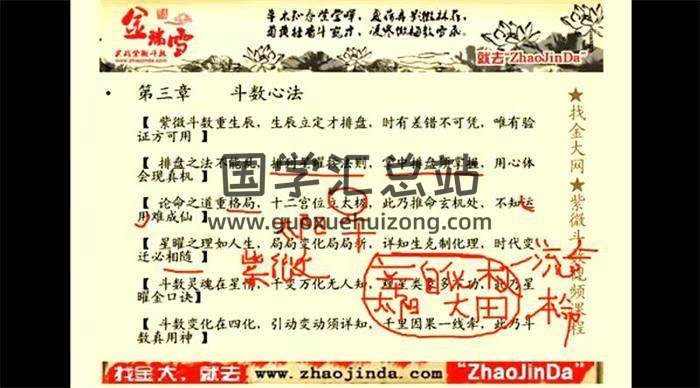 金瑞雪
www.zhaojinda.com
就去"ZhaoJinDa"
• 第三章 斗数心法
【 紫微斗数重生辰，生辰立定才排盘，时有差错不可凭，唯有验
证方可用 】
【 排盘之法不能
掌中排盘
用心体
会现真机 】
【 论命之道重格局，十二宫位立太极，此乃推命玄机处，不知运
用难成仙 】
【 星曜之理如人生，局局变化局局新，详知生克制化理，时代变
迁必相随 】
【 斗数灵魂在星情，千变万化无人知，
此乃星
曜金口诀 】
【 斗数变化在四化，引动变动须详知，千里因果一线牵，此乃斗
数真用神 】
★找金大网★紫微斗数视频课程
国学汇总站
www.guoxuehuizong.com
太阳
紫微
自化
太阳
流命
本命
找金大，就去 www.zhaojinda.com "ZhaoJinDa"